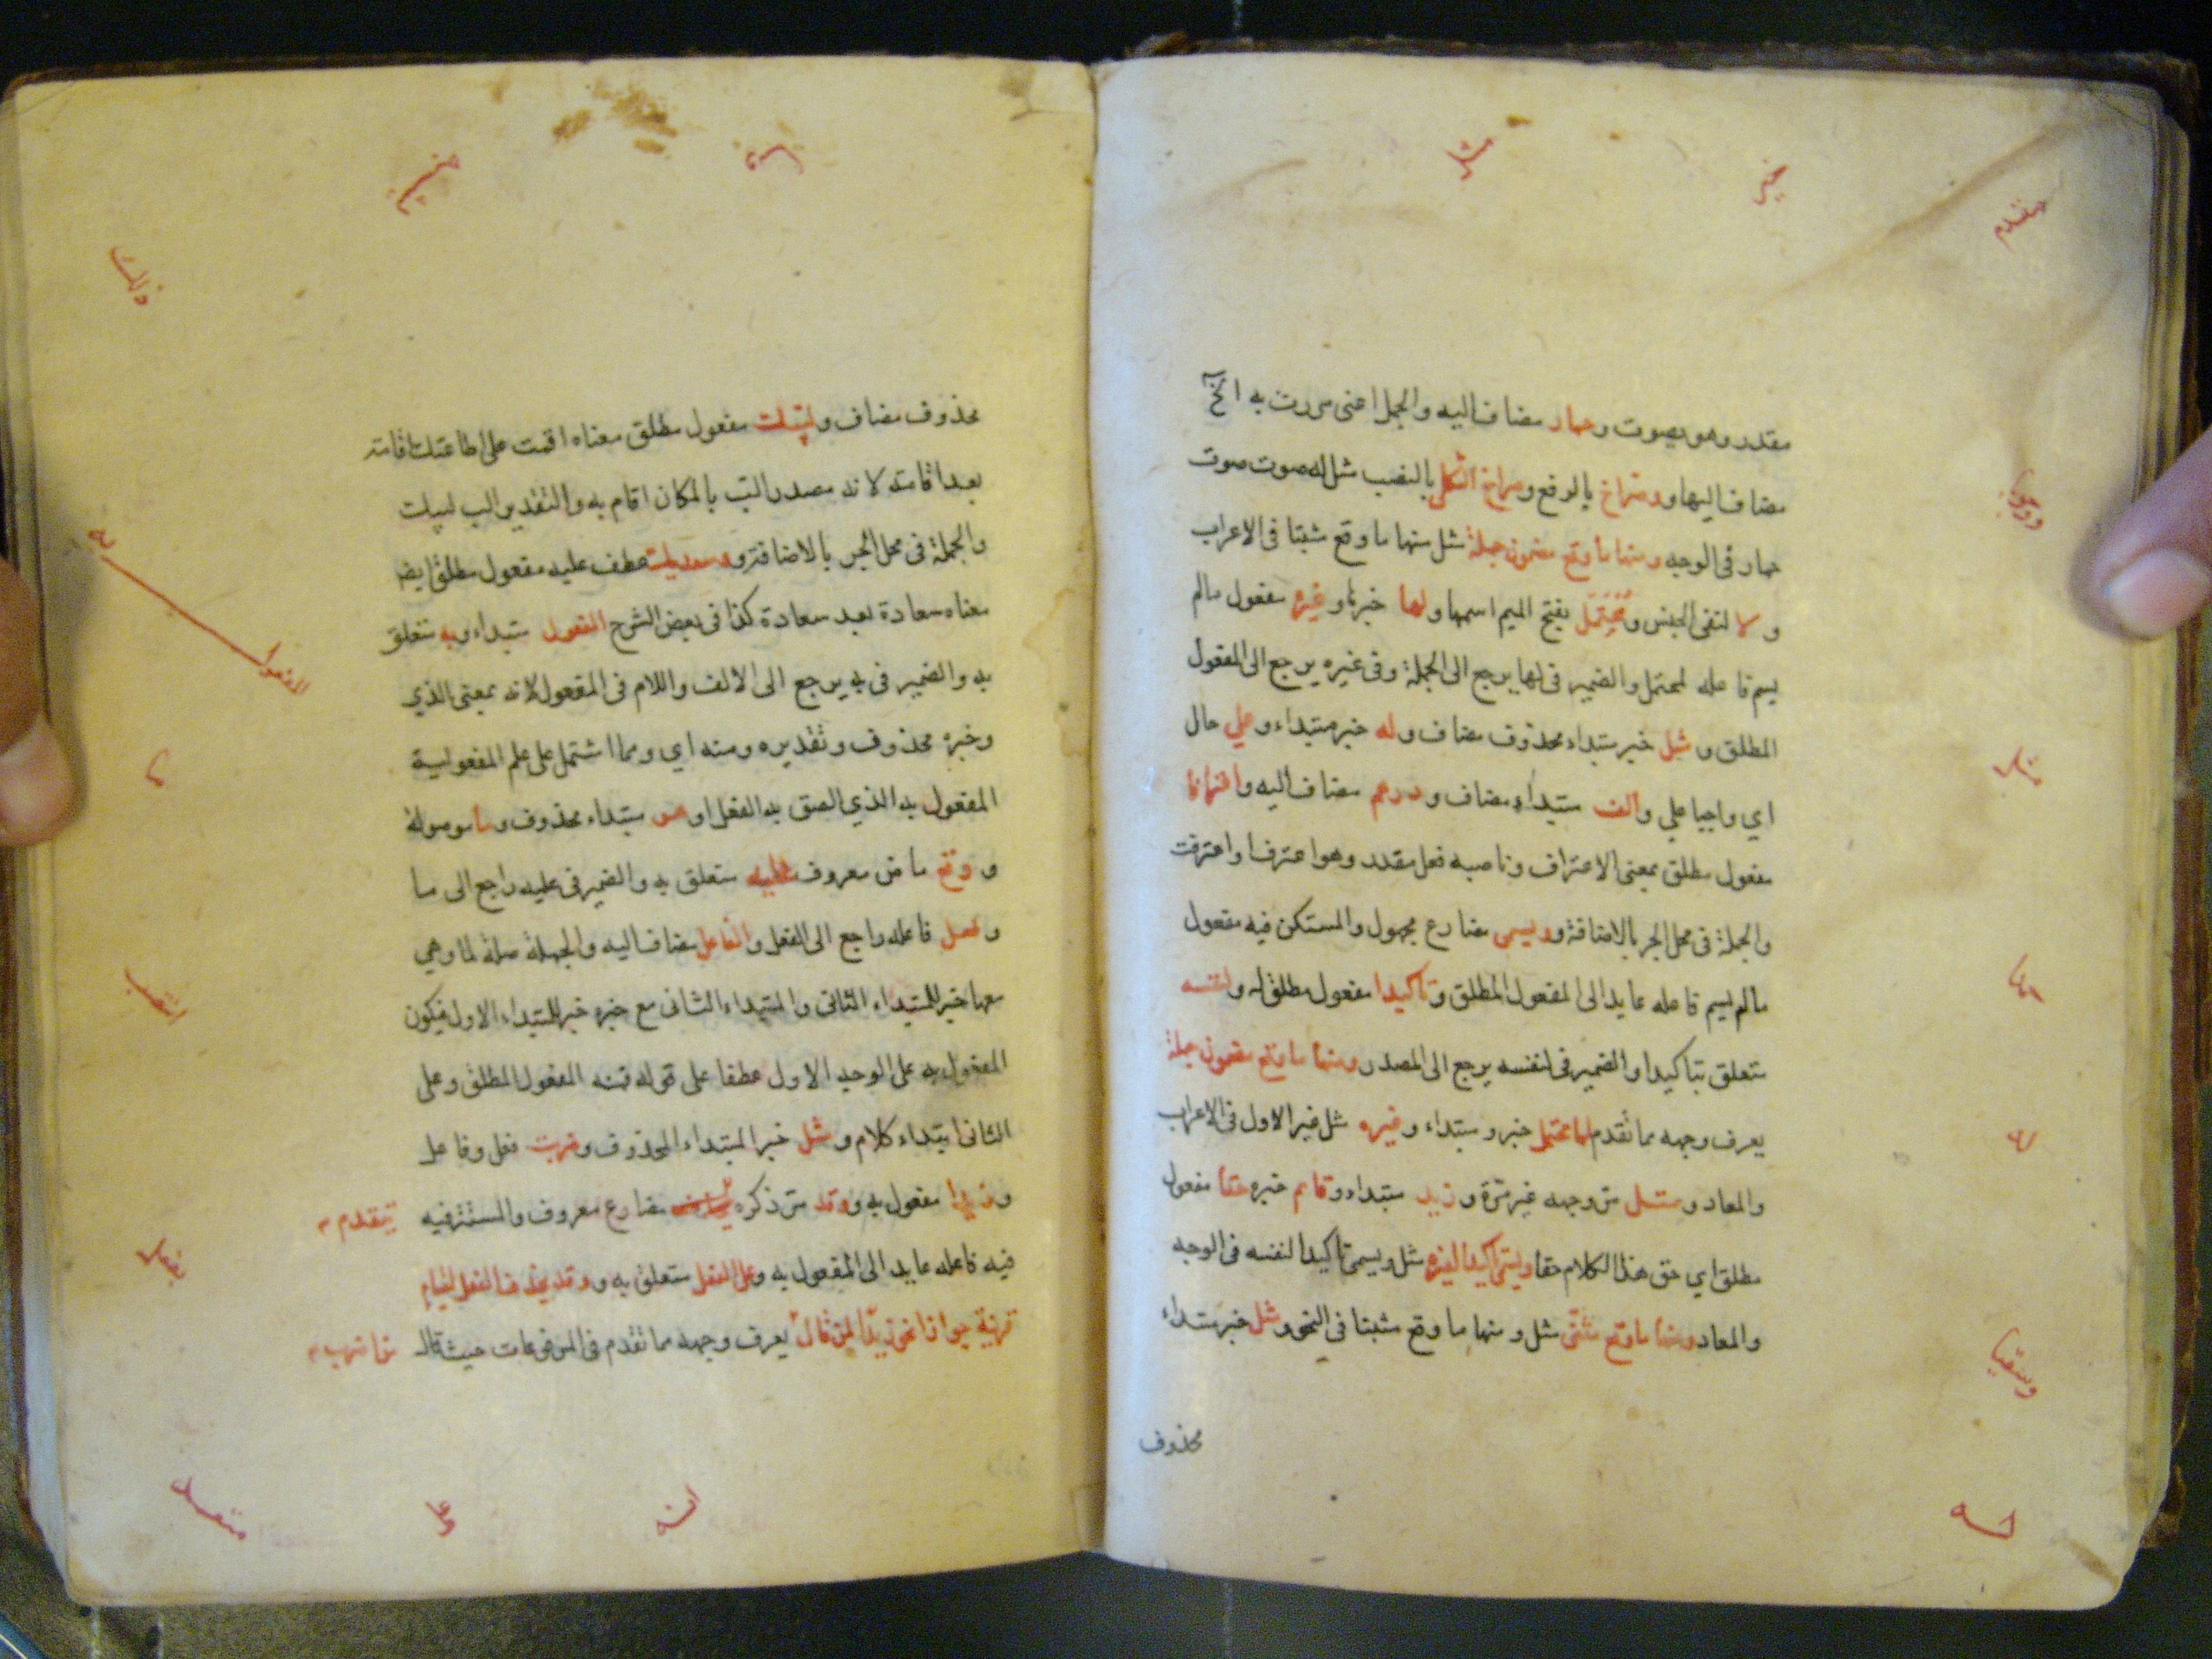 مقدر وهو يصوت وحمار مضاف اليه والجمل اعنى مررت به الخ
مضاف اليها وصراخ بالرفع وصراخ الثكلى بالنصب مثل له صوت صوت
حمار فى الوجه ومنها ما وقع مضمون جملة مثل منها ما وقع مثبتا فى الاعراب
و لا لنفى الجنس ومُحْتَمَل بفتح الميم اسمها ولها خبرها وغيره مفعول مالم
يسم فاعله لمحتمل والضمير فى لها يرجع الى الجملة وفى غيره يرجع الى المفعول
المطلق و مثل خبر مبتداء محذوف مضاف وله خبر مبتداء وعلي حال
اي واجبا علي والف مبتداء مضاف ودرهم مضاف اليه واعترافا
مفعول مطلق بمعنى الاعتراف وناصبه فعل مقدر وهو اعترف او اعترفت
والجملة فى محل الجر بالاضافة ويسمى مضارع مجهول والمستكن فيه مفعول
مالم يسم فاعله عايد الى المفعول المطلق وتاكيدا مفعول مطلق له ولنفسه
متعلق بتاكيدا والضمير فى لنفسه يرجع الى المصدر ومنها ما وقع مضمون جملة
يعرف وجهه مما تقدم لها محتمل خبر و مبتداء وغيره مثل غير الاول فى الاعراب
والمعاد ومثل مر وجهه غير مرة وزيد مبتداء وقايم خبره حقا مفعول
مطلق اي حق هذا الكلام حقا ويسمى تاكيدا لغيره مثل ويسمى تاكيدا لنفسه فى الوجه
والمعاد ومنها ما وقع مثنى مثل ومنها ما وقع مثبتا فى النحو ومثل خبر مبتداء
محذوف
محذوف مضاف ولبيك مفعول مطلق معناه اقمت على اطاعتك اقامة
بعد اقامة لانه مصدر الب بالمكان اقام به والتقدير الب لبيك
والجملة فى محل الجر بالاضافة وسعديك عطف عليه مفعول مطلق ايضا
معناه سعادة بعد سعادة كذا فى بعض الشرح المفعول مبتداء وبه متعلق
به والضمير فى به يرجع الى الالف واللام فى المفعول لانه بمعنى الذي
وخبره محذوف وتقديره ومنه اي ومما اشتمل على علم المفعولية
المفعول به الذي الصق به الفعل او هو مبتداء محذوف وما موصولة
و وقع ماض معروف عليه متعلق به والضمير فى عليه راجع الى ما
وفعل فاعله راجع الى الفعل والفاعل مضاف اليه والجملة صلة لما وهي
معها خبر للمبتداء الثانى والمبتداء الثانى مع خبره خبر للمبتداء الاول فيكون
المفعول به على الوجه الاول عطفا على قوله فمنه المفعول المطلق وعلى
الثانى ابتداء كلام ومثل خبر المبتداء المحذوف وضربت فعل وفاعل
وزيدا مفعول به وقد مر ذكره مضارع معروف والمستتر فيه يتقدم
فيه فاعله عايد الى المفعول به وعلى الفعل متعلق به وقد يحذف الفعل لقيام
قرينة جوازا نحو زيدا لمن قال يعرف وجهه مما تقدم فى المرفوعات حيث قال من اضرب